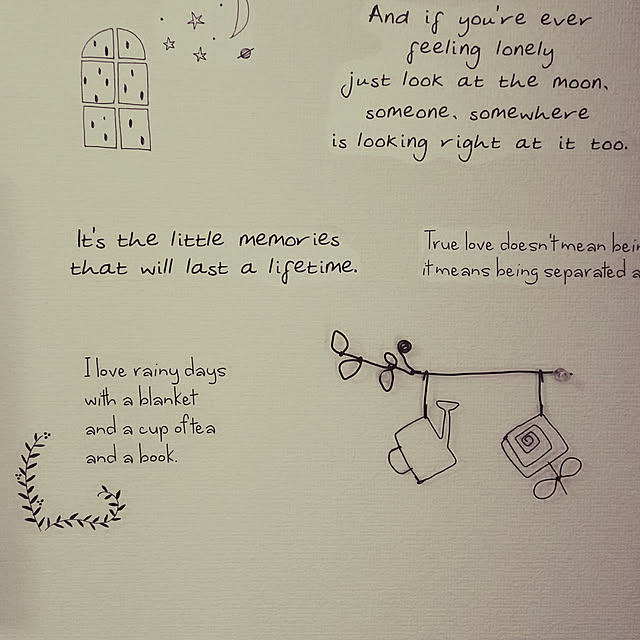 And if you're ever
feeling lonely
just look at the moon,
someone, somewhere
is looking right at it too.
It's the little memories
that will last a lifetime.
True love doesn't mean
it means being separated
I love rainy days
with a blanket
and a cup of tea
and a book.